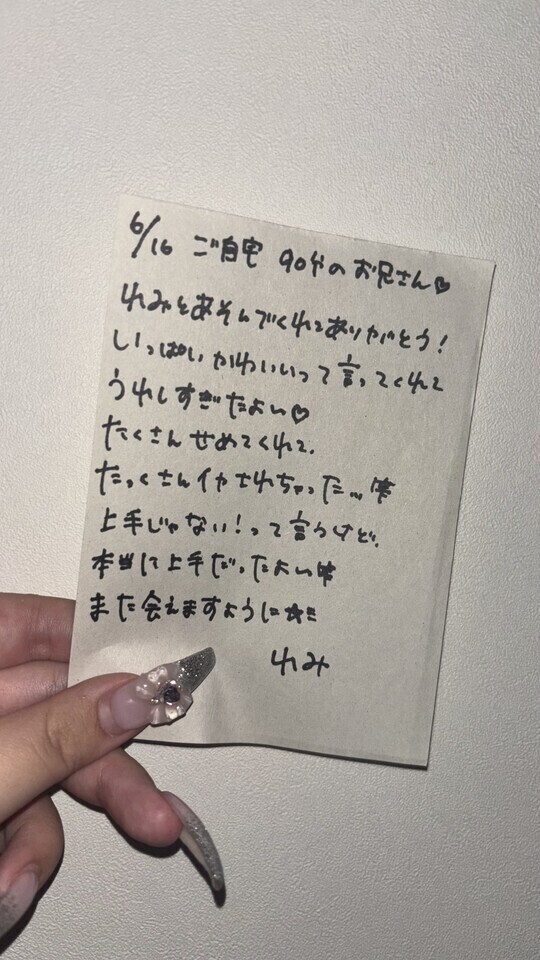 6/16 ご自宅 90分のお兄さん♡
れみとあそんでくれてありがとう!
いっぱいかわいいって言ってくれて
うれしすぎたよぃ♡
たくさんせめてくれて、
たっくさんイカされちゃった...笑
上手じゃない!って言うけど、
本当に上手だったよぃ笑
また会えますように☆ミ
れみ